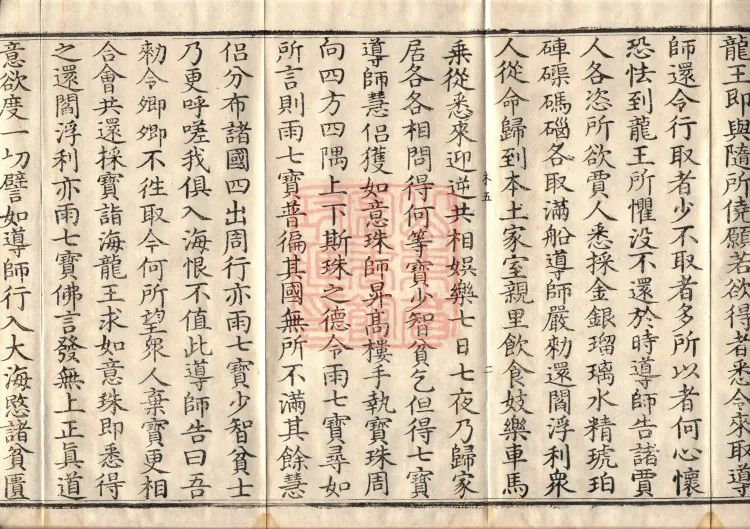 龍王即與隨所僥願若欲得者悉令來取導
師還令行取者少不取者多所以者何心懷
恐怯到龍王所懼没不還於時導師告諸賈
人各恣所欲賈人悉採金銀瑠璃水精琥珀
硨磲碼碯各取滿船導師嚴勑還閻浮利衆
人從命歸到本土家室親里飲食妓樂車馬
乗從悉來迎逆共相娯樂七日七夜乃歸家
居各各相問得何等寶少智貧乞但得七寶
導師慧侣獲如意珠師昇髙樓手執寶珠周
向四方四隅上下斯珠之德令雨七寶尋如
所言則雨七寶普徧其國無所不滿其餘慧
侣分布諸國四出周行亦雨七寶少智貧士
乃更呼嗟我俱入海恨不值此導師告曰吾
勑令卿卿不徃取今何所望衆人棄寶更相
合會共還採寶詣海龍王求如意珠即悉得
之還閻浮利亦雨七寶佛言發無上正真道
意欲度一切譬如導師行入大海愍諸貧匱